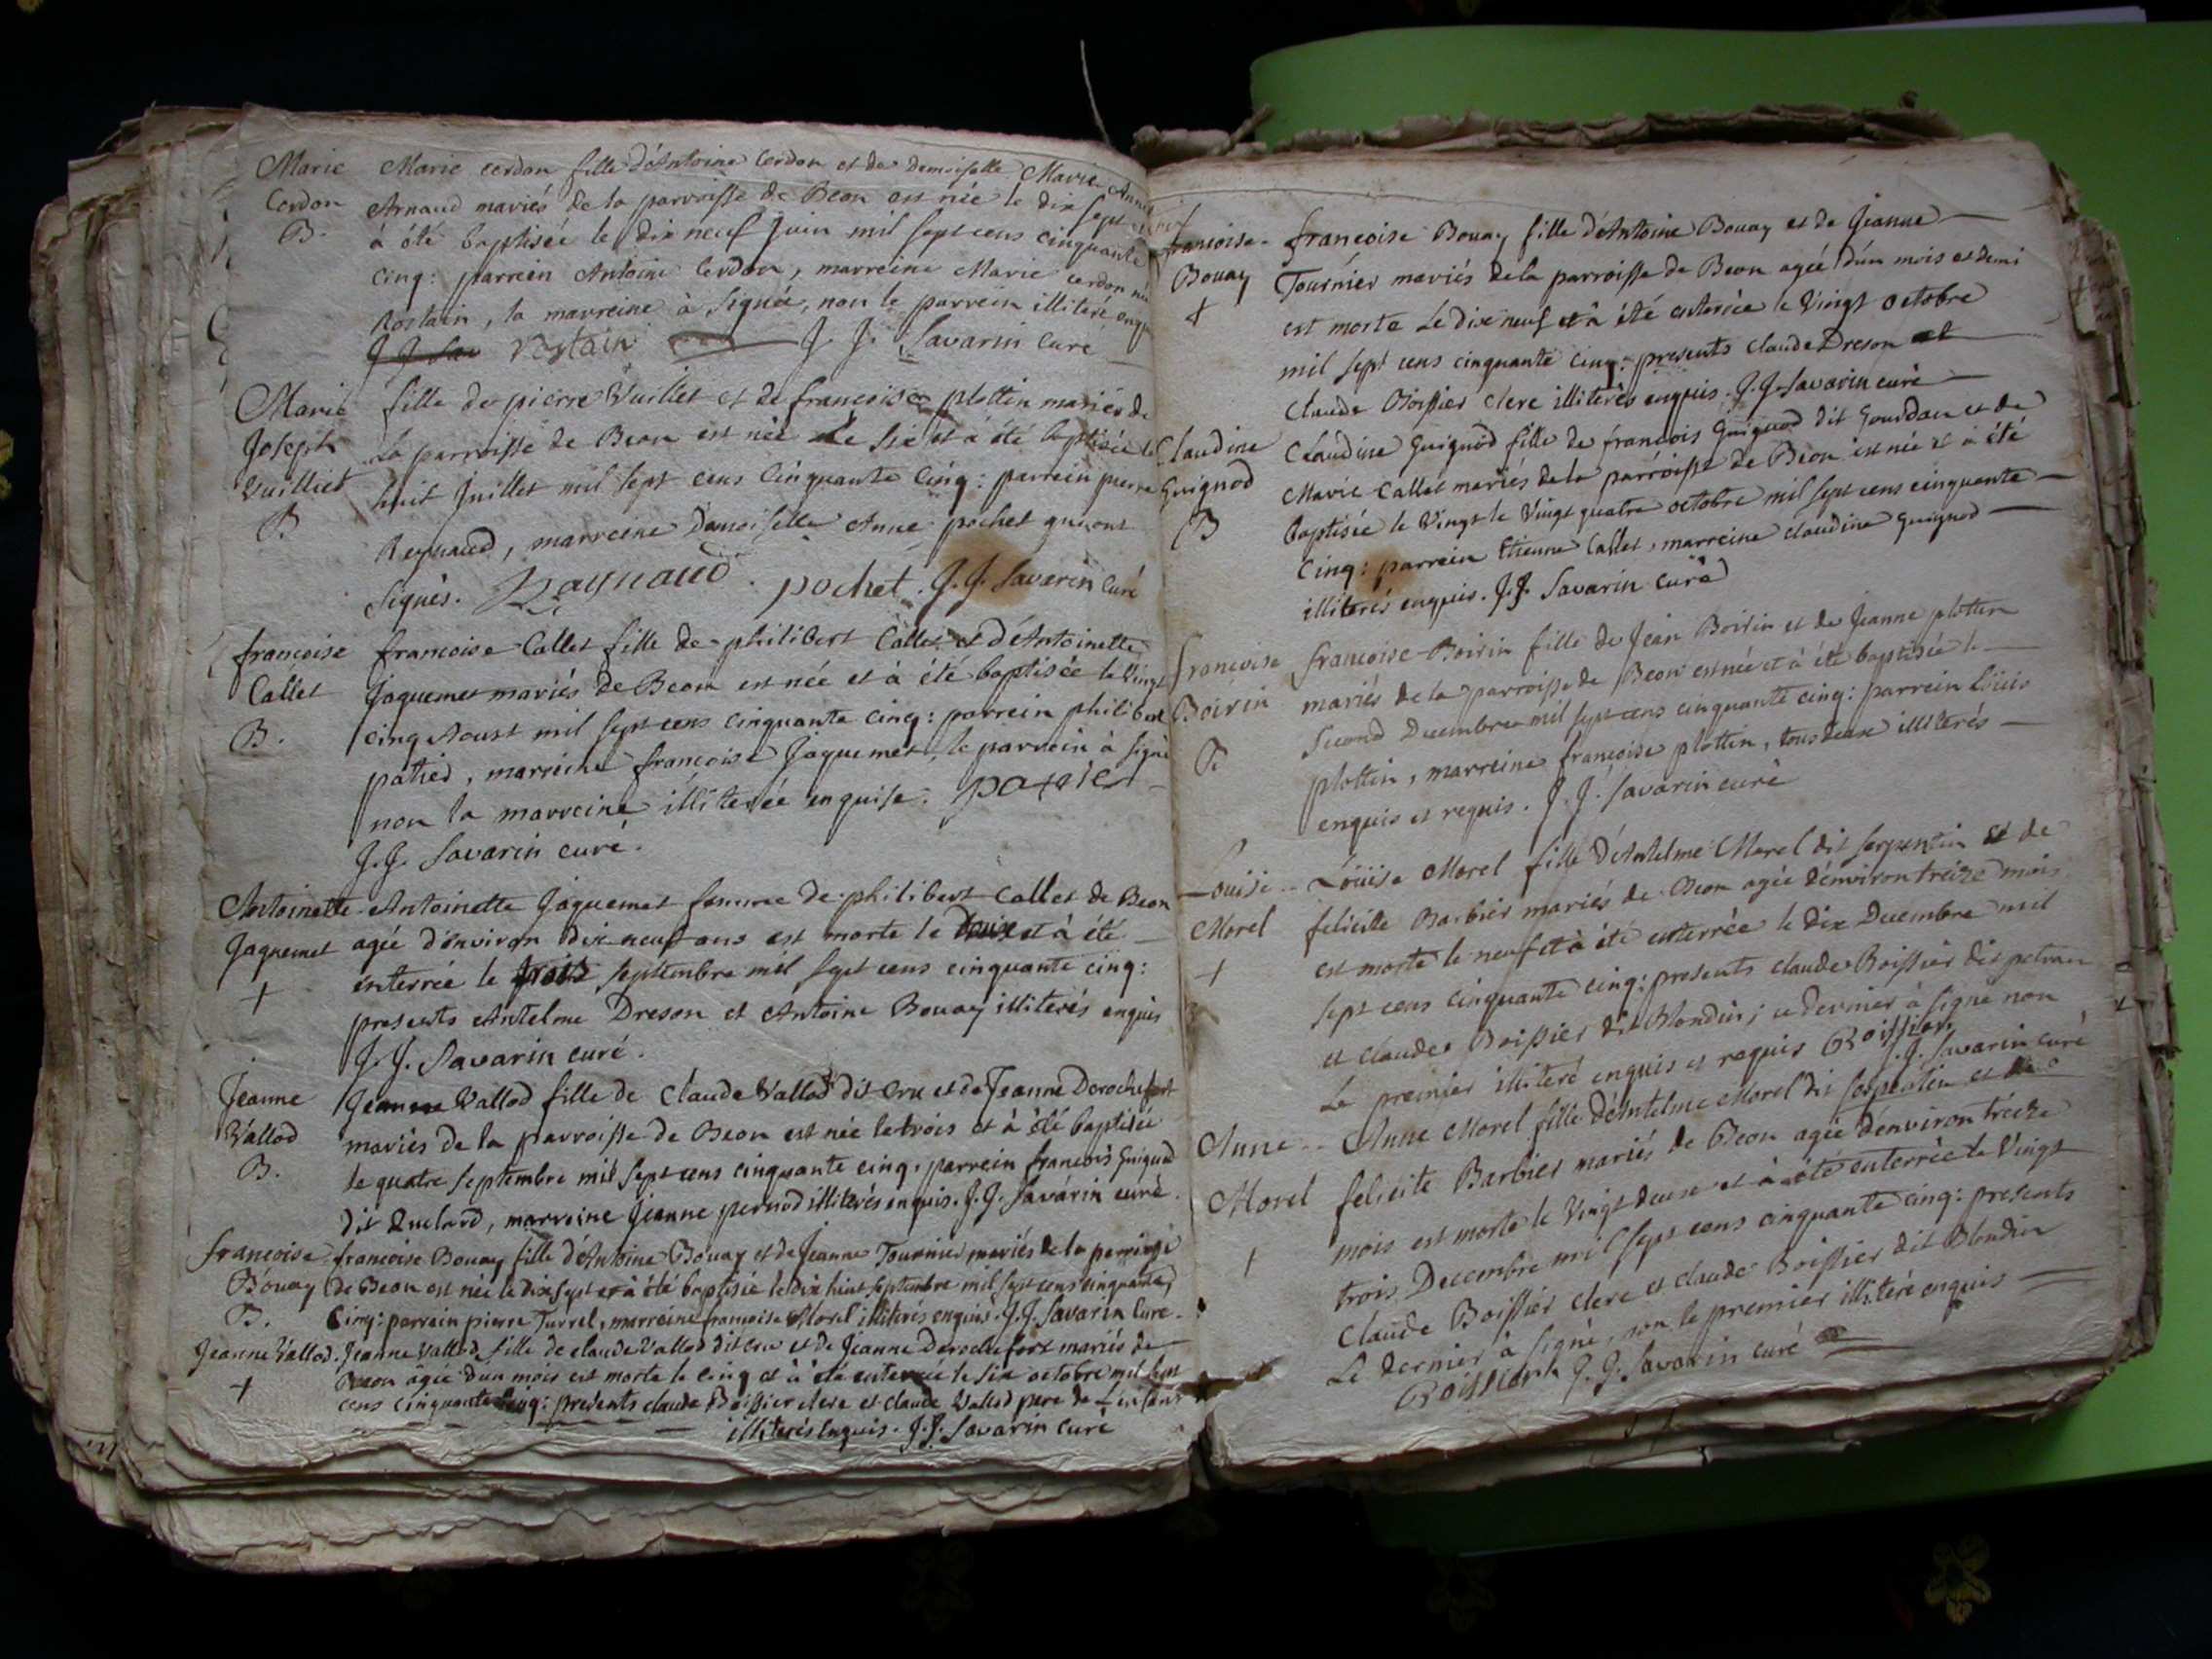 Marie Marie cerdon fille d'Antoine Cerdon et de demoiselle Marie Anne
Cerdon Arnaud mariés de la parroisse de Beon est née le dix sept et
B. à été baptisée le dix neuf Juin mil sept cens cinquante
cinq: parrein Antoine Cerdon, marreine Marie cerdon née
Rostain, la marreine à signée, non le parrein illiteré enquis
J J Sav Rostain J. J. Savarin Curé
Marie fille de pierre Vuilliet et de francoise plottin mariés de
Joseph La parroisse de Beon est née Le six et à été baptisée le
Vuilliet huit Juillet mil sept cens Cinquante Cinq: parrein pierre
B Reynaud, marreine Damoiselle Anne pochet qui ont
signés. Raynaud. pochet. J. J. Savarin Curé
francoise francoise Callet fille de philibert Callet et d'Antoinette
Callet Jaquemet mariés de Beon est née et à été baptisée le Vingt
B. cinq Aoust mil sept cens cinquante cinq: parrein philibert
patied, marreine francoise Jaquemet, le parrein à signé
non la marreine illiterée enquise.
J. J. Savarin curé.
Antoinette Antoinette Jaquemet femme de philibert Callet de Beon
Jaquemet agée d'environ dix neuf ans est morte le Deux et à été
+ enterrée le trois septembre mil sept cens cinquante cinq:
presents Antelme Dreson et Antoine Bouay illiterés enquis
J. J. Savarin curé.
Jeanne Jeanne Vallod fille de Claude Vallod dit Cru et de Jeanne Derochefort
Vallod mariés de la parroisse de Beon est née le trois et à été baptisée
B. le quatre septembre mil sept cens cinquante cinq. parrein francois Guignod
dit Quelard, marreine Jeanne pernod illiterés enquis. J. J. Savarin curé.
francoise francoise Bouay fille d'Antoine Bouay et de Jeanne Tournier mariés de la parroisse
Bouay de Beon est née le dix sept et à été baptisée le dix huit septembre mil sept cens cinquante
B. Cinq: parrein pierre Turrel, marreine francoise Morel illiterés enquis. J. J. Savarin Curé.
Jeanne Vallod. Jeanne Vallod fille de claude Vallod dit cru et de Jeanne Derochefort mariés de
+ Beon agée d'un mois est morte le cinq et à été enterrée le six octobre mil sept
cens cinquante Cinq: presents claude Boissier clerc et claude Vallod pere de L'enfant
illiterés Enquis. J. J. Savarin curé
francoise francoise Bouay fille d'Antoine Bouay et de Jeanne
Bouay Tournier mariés de la parroisse de Beon agée d'un mois et demi
+ est morte Le dix neuf et à été enterrée le Vingt octobre
mil sept cens cinquante cinq: presents claude Dreson et
claude Boissier clerc illiterés enquis. J. J. Savarin curé
Claudine Claudine Guignod fille de francois Guignod dit Gourdan et de
Guignod Marie Callet mariés de la parroisse de Beon est née et à été
B baptisée le Vingt le Vingt quatre octobre mil sept cens cinquante
Cinq: parrein Etienne Callet, marreine claudine Guignod
illiterés enquis. J. J. Savarin curé
francoise francoise Boirin fille de Jean Boirin et de Jeanne plottin
Boirin mariés de la parroisse de Beon est née et à été baptisée le
B second Decembre mil sept cens cinquante cinq: parrein Loüis
plottin, marreine françoise plottin, tous deux illiterés
enquis et requis. J. J. Savarin curé
Louise Loüise Morel fille d'Antelme Morel dit serpentin et de
Morel felicité Barbier mariés de Beon agée d'environ treize mois
+ est morte le neuf et à été enterrée le dix Decembre mil
sept cens cinquante cinq: presents claude Boissier dit petran
et claude Boissier dit Blondin; ce dernier à signé non
Le premier illiteré enquis et requis Boissier
J. J. Savarin curé
Anne Anne Morel fille d'Antelme Morel dit serpentin et de
Morel felicité Barbier mariés de Beon agée d'environ treize
+ mois est morte le Vingt deux et à été enterrée le Vingt
trois Decembre mil sept cens cinquante cinq: presents
Claude Boissier clerc et claude Boissier dit Blondin
Le dernier à signé, non le premier illiteré enquis
Boissier J. J. Savarin curé